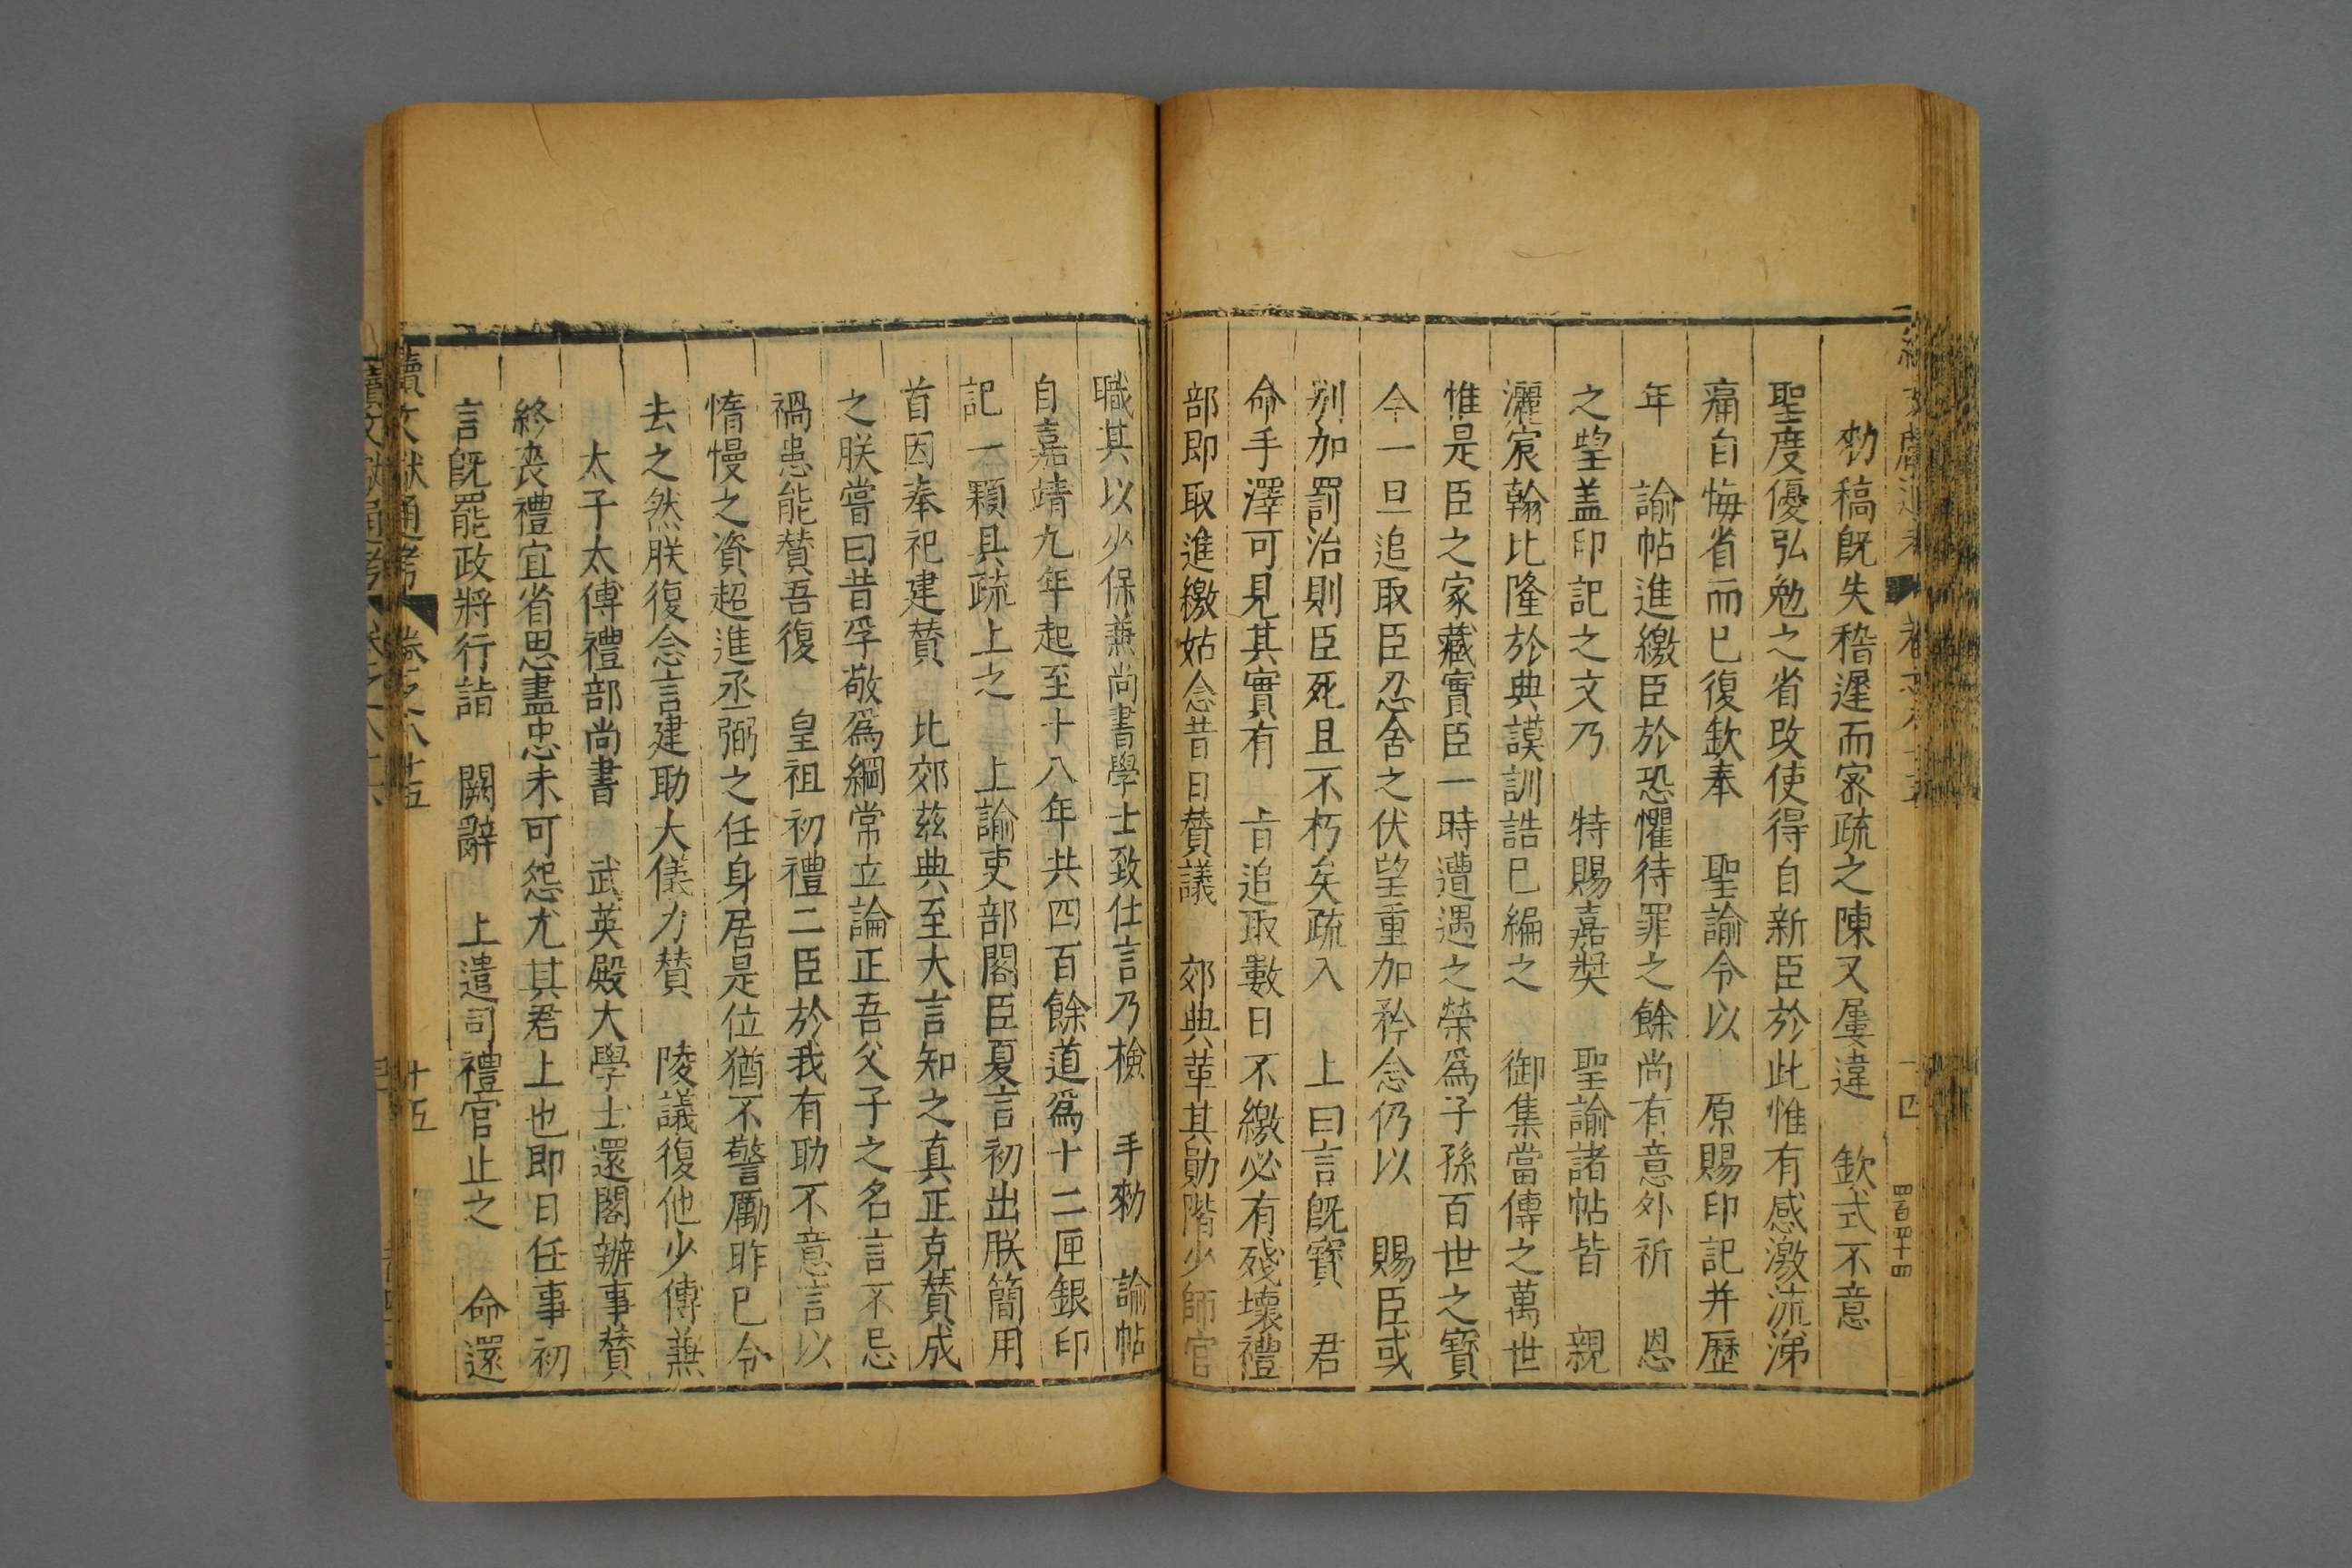 勑稿旣失稽遲而密疏之陳又屢違 欽式不意
聖度優弘勉之省改使得自新臣於此惟有感激流涕
痛自悔省而已復欽奉 聖諭令以 原賜印記并歷
年 諭帖進繳臣於恐懼待罪之餘尚有意外祈 恩
之望盖印記之文乃 特賜嘉奬 聖諭諸帖皆 親
灑宸翰比隆於典謨訓誥已編之 御集當傳之萬世
惟是臣之家藏實臣一時遭遇之榮爲子孫百世之寶
今一旦追取臣忍舍之伏望重加矜念仍以 賜臣或
别加罰治則臣死且不朽矣疏入 上曰言旣寳 君
命手澤可見其實有 㫖追取數日不繳必有殘壞禮
部即取進繳姑念昔日賛議 郊典革其勛階少師官
職其以少保兼尚書學士致仕言乃檢 手勑 諭帖
自嘉靖九年起至十八年共四百餘道爲十二匣銀印
記一顆具疏上之 上諭吏部閣臣夏言初出朕簡用
首因奉祀建賛 比郊兹典至大言知之真正克賛成
之朕嘗曰昔孚敬爲綱常立論正吾父子之名言不忌
禍患能賛吾復 皇祖初禮二臣於我有助不意言以
惰慢之資超進丞弼之任身居是位猶不警厲昨已令
去之然朕復念言建助大儀力賛 陵議復他少傅兼
太子太傅禮部尚書 武英殿大學士還閣辦事賛
終喪禮宜省思盡忠未可怨尤其君上也即日任事初
言旣罷政將行詣 闕辭 上遣司禮官止之 命還
續文獻通考 卷之八十五 十五